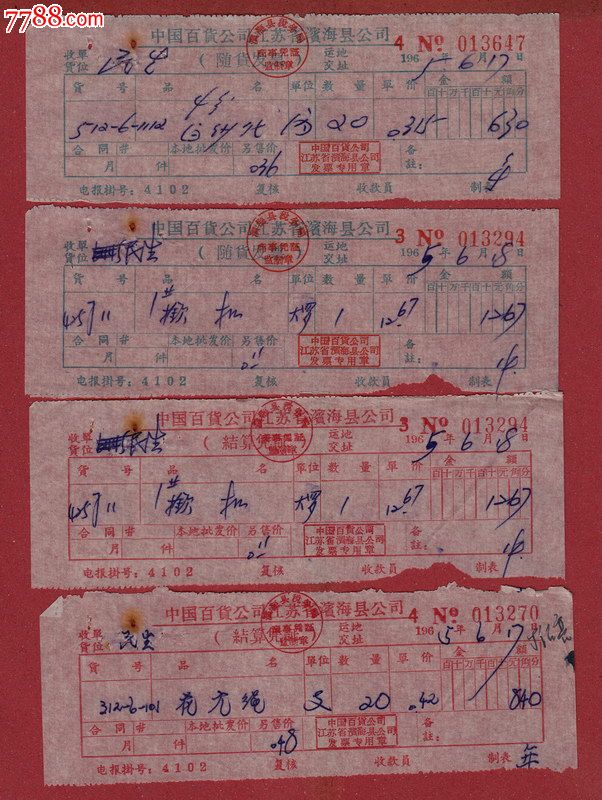 7788.com
中国百貨公司江苏省濱海县公司
4 No 013647
收單
貨位
(随貨发
运地
交址
1965年6月17日
貨号 品名 單位 數量 單价 金額
百十万千百十元角分
512-6-1112 20 0315 630
合同# 本地批发价 另售价
月 件 036
中国百貨公司
江苏省濱海县公司
发票专用章
备
註:
电报掛号:4102 复核 收款員 制表
中国百貨公司江苏省濱海县公司
3 No 013294
收單
貨位 民生
(随貨发
运地
交址
1965年6月18日
貨号 品名 單位 數量 單价 金額
百十万千百十元角分
1# 揿扣 大罗 1 12.67 1267
合同# 本地批发价 另售价
月 件 0.11
中国百貨公司
江苏省濱海县公司
发票专用章
备
註:
电报掛号:4102 复核 收款員 制表
中国百貨公司江苏省濱海县公司
3 No 013294
收單
貨位 民生
(結算凭
运地
交址
1965年6月18日
貨号 品名 單位 數量 單价 金額
百十万千百十元角分
1# 揿扣 大罗 1 12.67 1267
合同# 本地批发价 另售价
月 件 0.11
中国百貨公司
江苏省濱海县公司
发票专用章
备
註:
电报掛号:4102 复核 收款員 制表
中国百貨公司江苏省濱海县公司
4 No 013270
收單
貨位 民生
(結算凭
运地
交址
1965年6月17日
貨号 品名 單位 數量 單价 金額
百十万千百十元角分
312-6-101 花元绳 支 20 .42 840
合同# 本地批发价 另售价
月 件 .048
中国百貨公司
江苏省濱海县公司
发票专用章
备
註:
电报掛号:4102 复核 收款員 制表